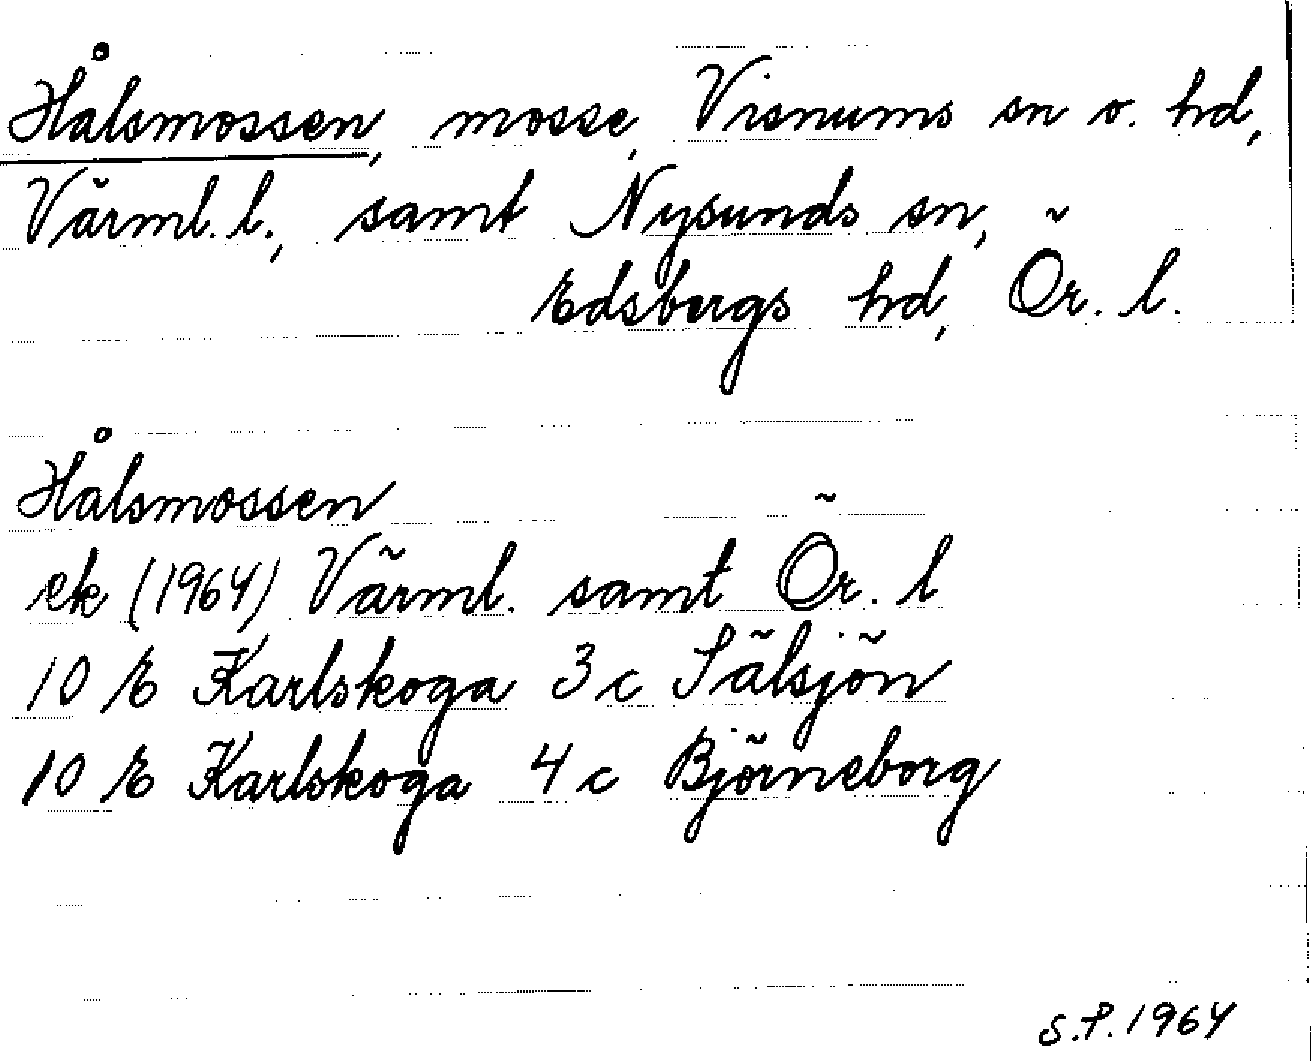 Hålsmossen, mosse, Visnums sn o. hd,
Värml. l., samt Nysunds sn,
Edsbergs hd, Ör. l.
Hålsmossen
ek (1964) Värml. samt Ör. l
10 E Karlskoga 3 c Sälsjön
10 E Karlskoga 4 c Björneborg
S.P. 1964